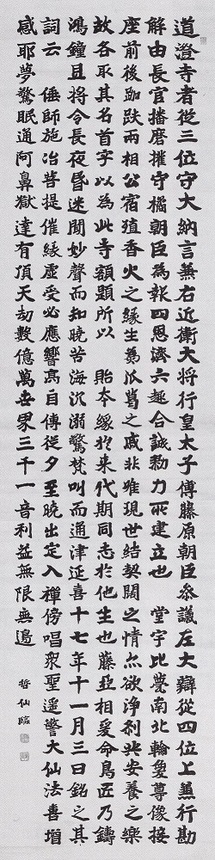 道澄寺者從三位守大納言兼右近衛大將行皇太子傅藤原朝臣叅議左大辨從四位上兼行勘
解由長官播磨權守橘朝臣為報四恩濟六趣合誠勠力所建立也　堂宇比甍南北輪奐尊像接
座前後跏趺兩相公宿殖香火之緣生為瓜葛之戚非唯現世結契闊之情亦欲淨刹共安養之樂
故各取其名首字以為此寺額題所以　貽本緣於來代期同志於他生也藤亞相爰命鳧匠乃鑄
鴻鐘且將令長夜昏迷聞妙聲而知曉苦海沉溺驚梵叫而通津延喜十七年十一月三日銘之其
詞云　倕師施冶菩提催緣虛受必應響高自傳從夕至曉出定入禪傍唱衆聖遥警大仙法喜增
感耶夢驚眠通阿鼻獄達有頂天劫數億萬世界三千一音利益無限無邊
哲仙臨